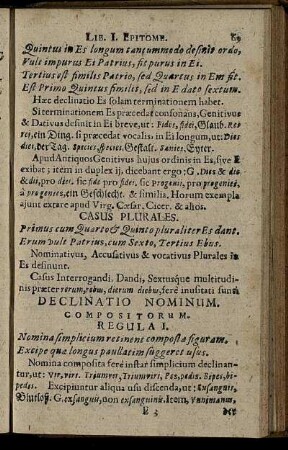 LIB. I. EPITOME. 69
Quintus in Es longum tantummodo desinit ordo,
Vult impurus Ei Patrius, fit purus in Ei.
Tertius est similis Patrio, sed Quartus in Em fit.
Est Primo Quintus similis, sed in E dato sextum.
Hæc declinatio Es solam terminationem habet.
Si terminationem Es præcedat consonans, Genitivus
& Dativus desinit in Ei breve, ut: Fides, fidei, Glaub. Res,
rei, ein Ding. si præcedat vocalis in Ei longum, ut: Dies
diei, der Tag. Species, speciei, Gestalt. Sanies, Eyter.
Apud Antiquos Genitivus hujus ordinis in Es, sive E
exibat; item in duplex ij. dicebant ergo: G. Dies & die
& dii, pro diei: sic fide pro fidei. sic progenii, pro progeniei,
à progenies, ein Geschlecht. & similia, Horum exempla
ajunt extare apud Virg. Cæsar. Cicer. & alios.
CASUS PLURALES.
Primus cum Quarto & Quinto pluraliter Es dant.
Erum vult Patrius, cum Sexto, Tertius Ebus.
Nominativus, Accusativus & vocativus Plurales in
Es desinunt.
Casus Interrogandi, Dandi, Sextusque multitudi-
nis præter rerum, rebus, dierum diebus, ferè inusitati sunt.
DECLINATIO NOMINUM.
COMPOSITORUM.
REGULA I.
Nomina simplicium retinent composta figuram.
Excipe quæ longus paullatim suggeret usus.
Nomina composita ferè instar simplicium declinan-
tur, ut: Vir, viri. Triumvir, Triumviri, Pes, pedis. Bipes, bi-
pedis. Excipiuntur aliqua usu discenda, ut: Exsanguis,
Blutloß. G. exsanguis, non exsanguinis. Item, Unnimanus,
E 3